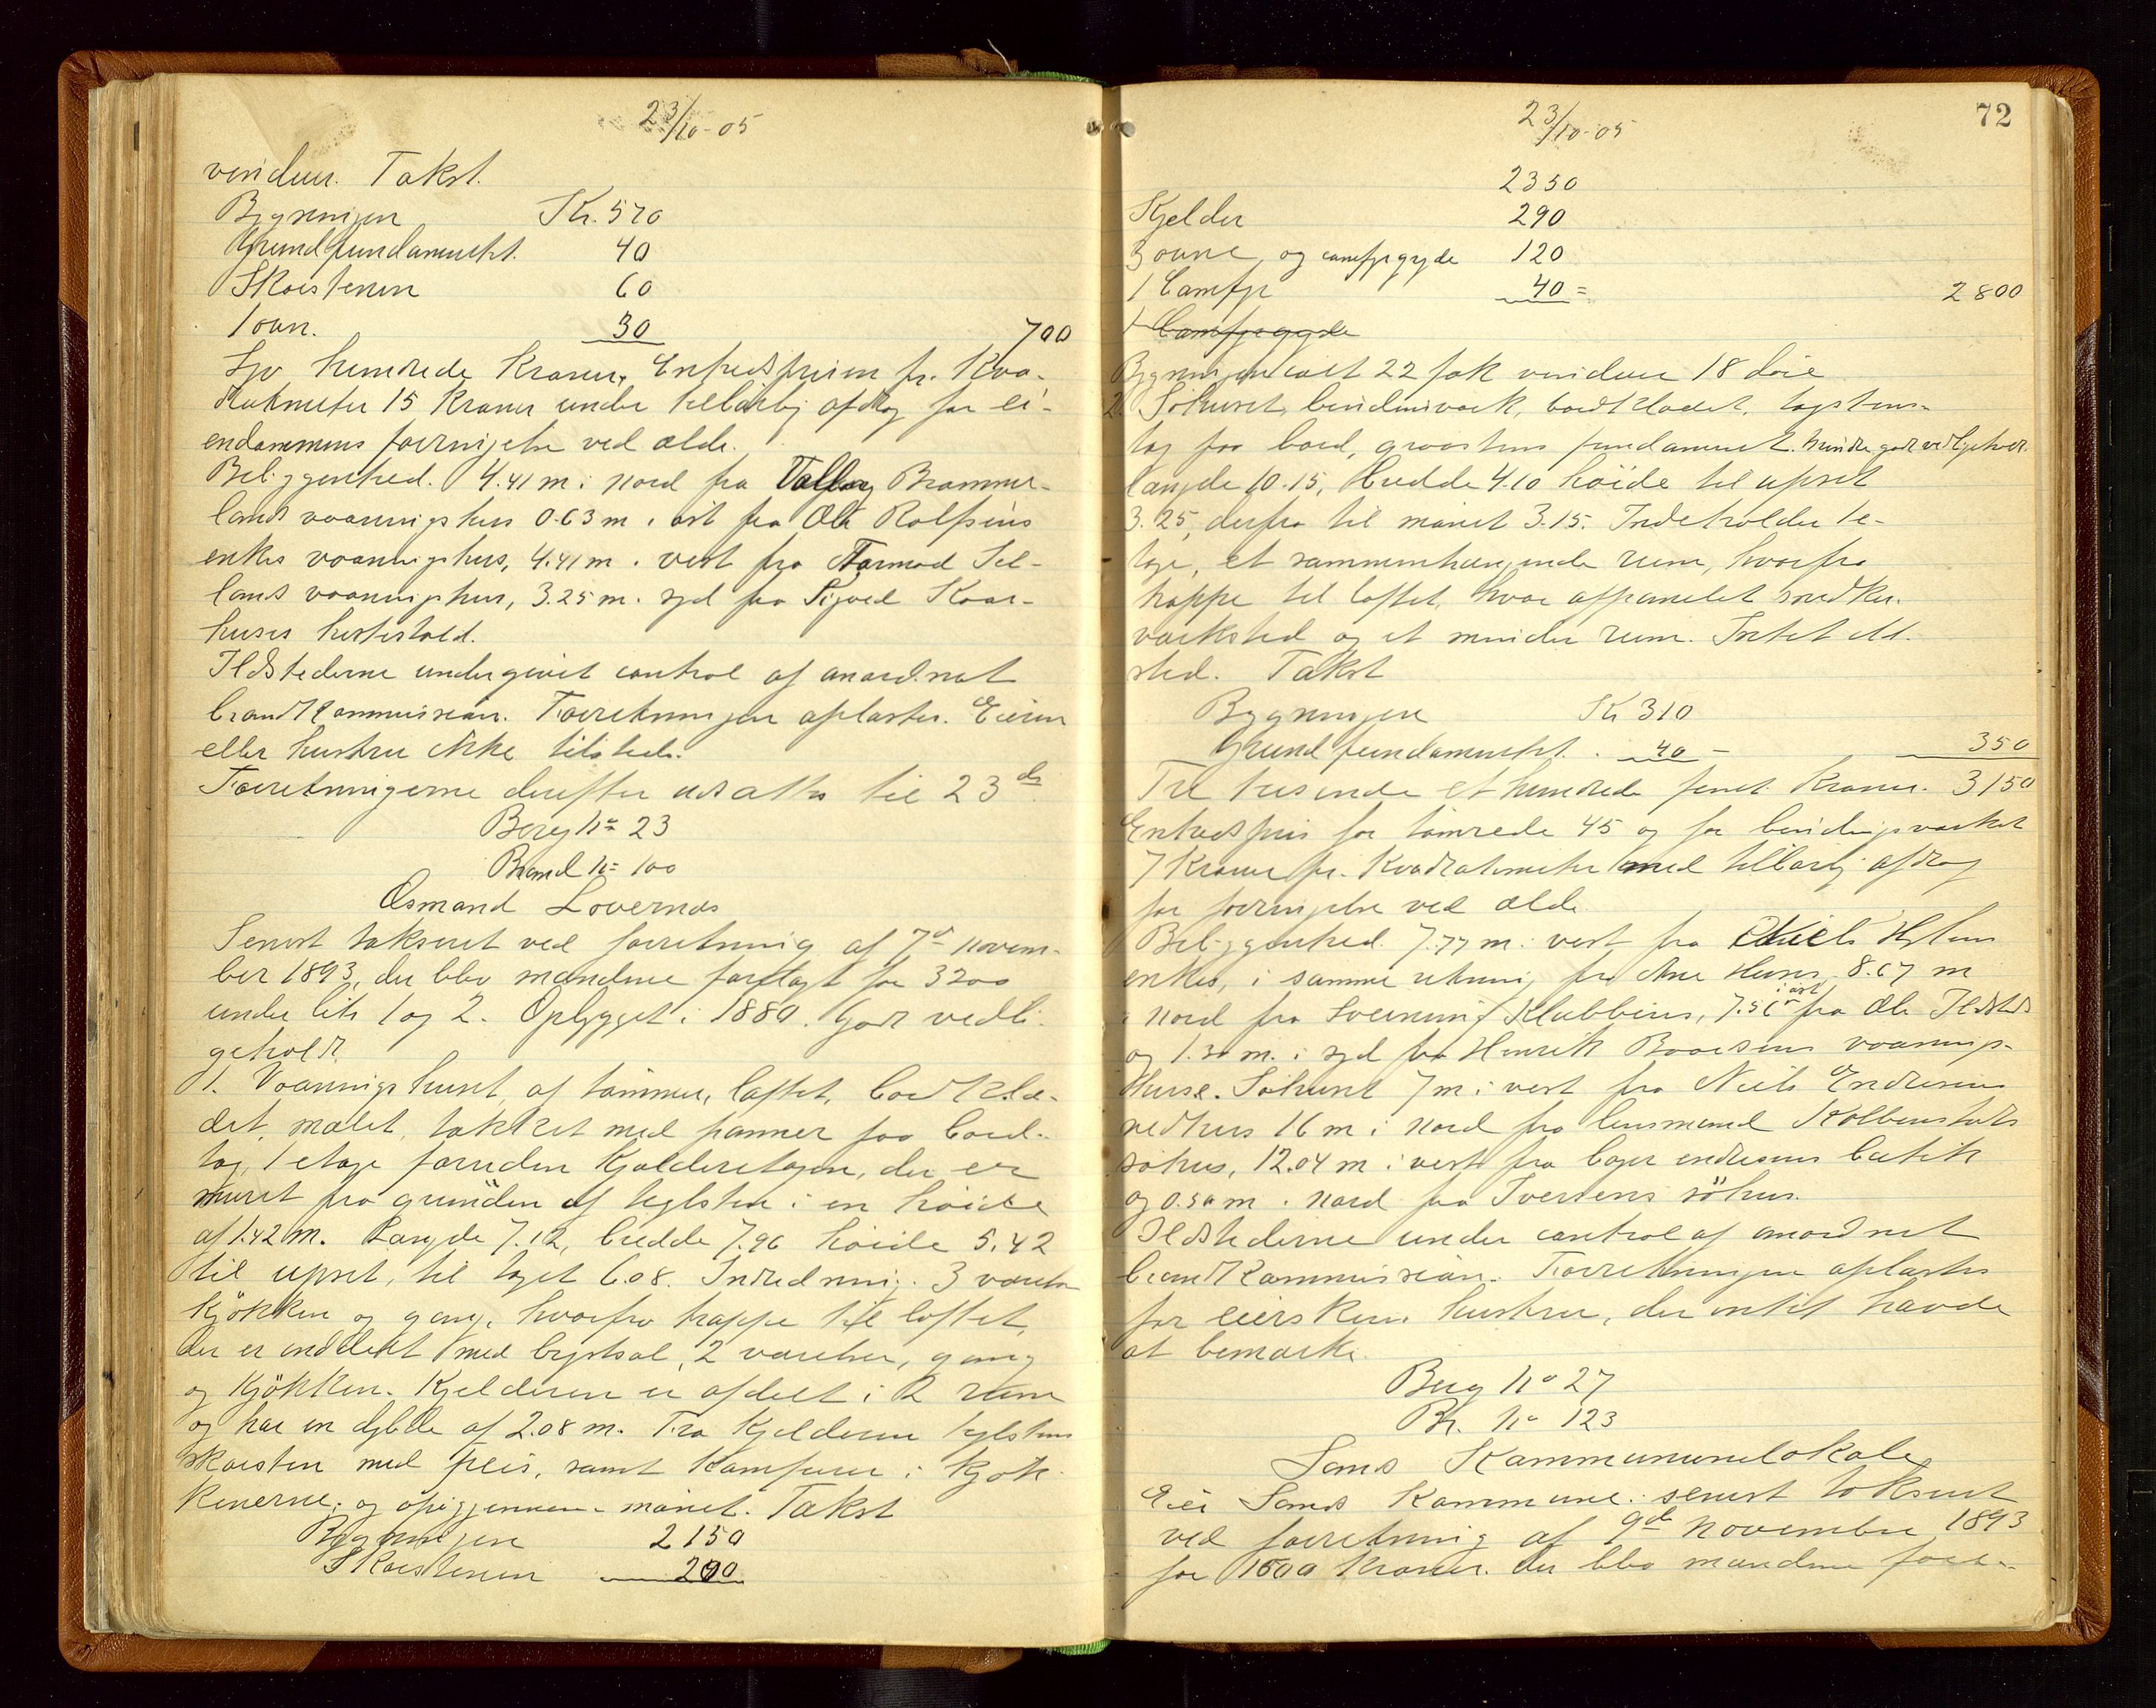 23/10-05
vinduer. Takst.
Bygningen Kr. 570
Grundfundamentet. 40
Skorstenen 60
1 ovn. 30 700
Syv hundrede kroner. Enhedsprisen pr. kva-
dratmeter 15 kroner under tilbørlig afdrag for ei-
endommens forringelse ved ælde.
Beliggenhed. 4.41 m i nord fra Valborg Brommer-
lands vaaningshus 0.63 m i øst fra Ole Rolfsens
enkes vaaningshus, 4.41 m i vest fra Tormod Sel-
lands vaaningshus, 3.25 m. syd fra Sigved Kaar-
huses hestestald.
Ildstederne undergivet control af anordnet
brandkommission. Forretningen oplæstes. Eieren
eller hustru ikke tilstede.
Forretningerne derefter udsattes til 23de
Bereg no 23
Brand no 100
Osmund Lovernæs
Senest takseret ved forretning af 7de novem-
ber 1893, der blev mændene forelagt for 3200
under litr 1 og 2. Opbygget i 1880. Godt vedli-
geholdt.
1. Vaaningshuset, af tømmer, loftet, bordklæ-
det, malet, tækket med panner paa bord-
tag, 1 etage foruden kjelderetagen, der er
muret fra grunden af teglsten i en høide
af 1.42 m. Længde 7.12, bredde 7.96 høide 5.42
til upset, til taget 6.08. Indredning. 3 værelser
kjøkken og gang, hvorfra trappe til loftet,
der er inddelt med brystsal, 2 værelser, gang
og kjøkken. Kjelderen er afdelt i 2 rum
og har en dybde af 2.08 m. Fra kjelderen teglstens
skorsten med peis, samt kamfurer i kjøk-
kenerne, og opigjennem mønet. Takst
Bygningen 2150
Skorstenen 200
23/10-05
72
2350
Kjelder 290
3 ovne og camfyrgryde 120
1 Camfyr 40 = 2800
1 Camfyrgryde
Bygningen ialt 22 fak vinduer 18 døre
2. Søhuset, bindingsværk, bordklædet, tagstens-
tag paa bord, graastens fundament. mindre godt vedligeholdt.
længde 10.15, bredde 4.10 høide til upset
3.25, derfra til mønet 3.15. Indeholder 1 e-
tage, et sammenhængende rum, hvorfra
trappe til loftet, hvor afpanelet snedker-
værksted og et mindre rum. Intet ild-
sted. Takst
Bygningen Kr 310
Grundfundamentet. 40 - 350
Tre tusinde et hundrede femti kroner. 3150
Enhedspris for tømrede 45 og for bindingsværket
7 kroner pr. kvadratmeter med tilbørlig afdrag
for forringelse ved ælde.
Beliggenhed. 7.77 m. vest fra Niels Hylens
enkes, i samme retning fra Ane Huses 8.67 m
i nord fra Svenning Klubbens, 7.56 i øst fra Ole Ildsteds
og 1.30 m. i syd fra Henrik Boardsens vaanings-
huse. Søhuset 7 m i vest fra Niels Endresens
vedhus 16 m i nord fra lensmand Kolbenstvedts
søhus, 12.04 m i vest fra Roger endresens butik
og 0.50 m. nord fra Ivertens søhus.
Ildstederne under control af anordnet
brandkommission. Forretningen oplæstes
for eierskens hustru, der intet havde
at bemærke.
Bereg no 27
Br. no 123
Sands Kommunelokale
Eier Sands kommune. senest takseret
ved forretning af 9de november 1893
for 1500 kroner. der blev mændene fore-